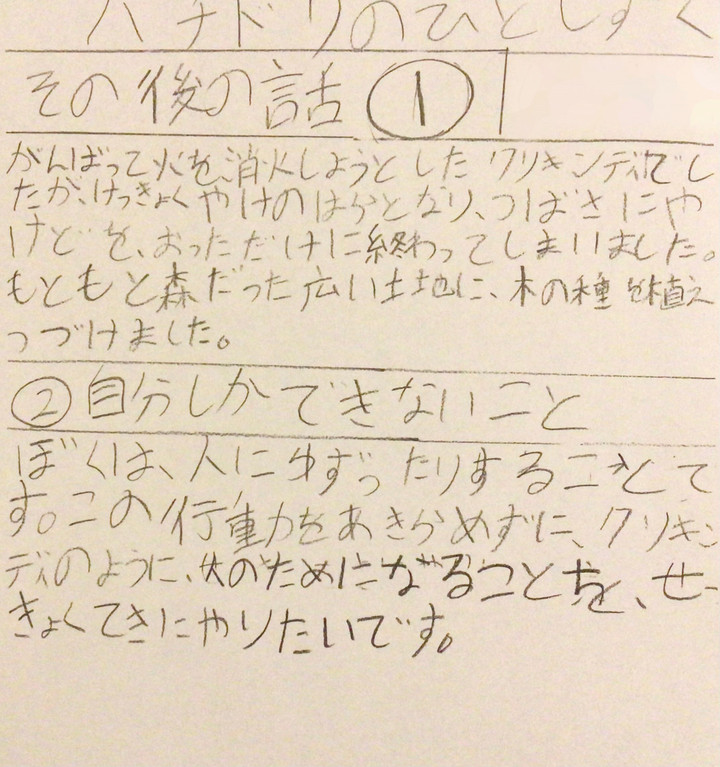 ハチドリのひとしずく
その後の話 ①
がんばって火を、消火しようとしたクリキンディでし
たが、けっきょくやけのはらとなり、つばさにや
けどを、おっただけに終わってしまいました。
もともと森だった広い土地に、木の種を植え
つづけました。
②自分しかできないこと
ぼくは、人にゆずったりすることで
す。この行動力をあきらめずに、クリキン
ディのように、人のためになることを、せっ
きょくてきにやりたいです。